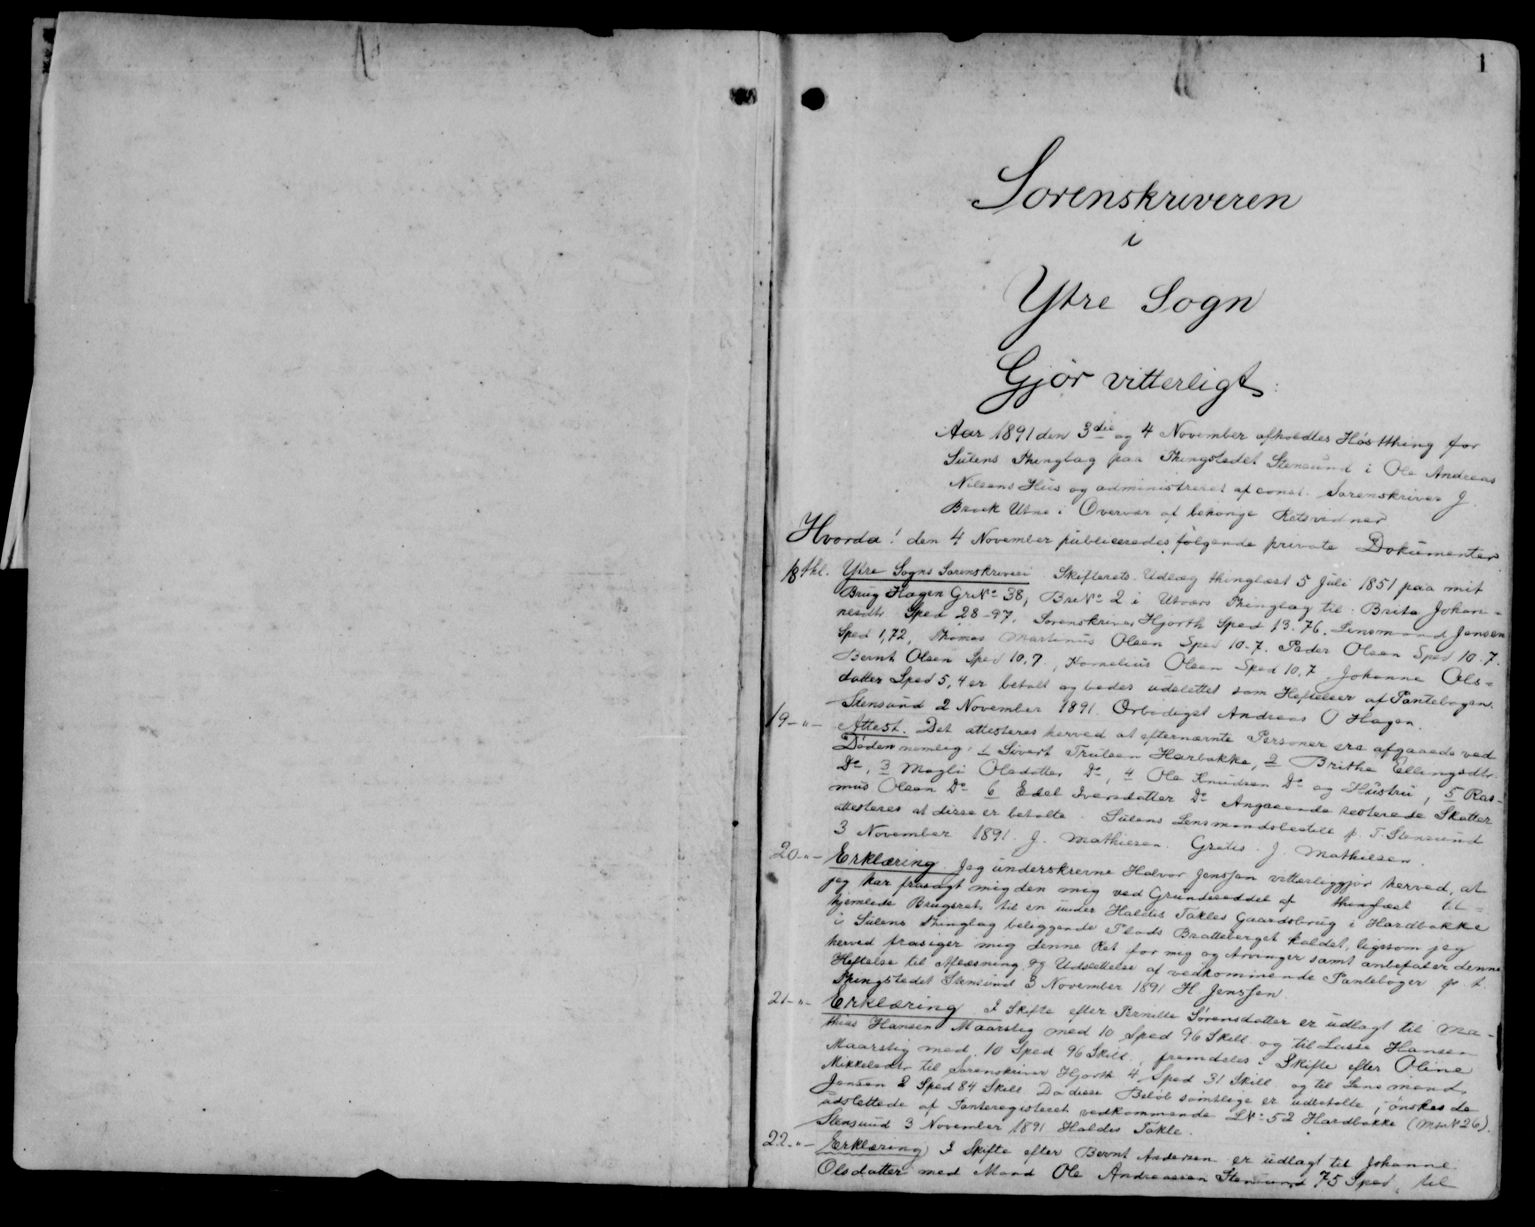 1
Sorenskriveren
i
Ytre Sogn
Gjør vitterligt:
Aar 1891 den 3die og 4 November afholdtes Høstthing for
Sulens Thinglag paa Thingstedet Stensund i Ole Andreas
Nilsens Hus og administreret af const. Sorenskriver J.
Utne i Overvær af Retsvidner
Hvorda! den 4 November publiceredes følgende private Dokumenter
18 thl. Ytre Sogns Sorenskriveri Skifterets Udlæg thinglæst 5 Juli 1851 paa mit
Brug Hagen GrNo 38, BrNo 2 i Utværs Thinglag til: Brita Johan-
nesdtr Sped 28-97, Sorenskriver Hjorth Sped 13.76, Lensmand Jensen
Sped 1,72, Thomas Martinus Olsen Sped 10.7. Peder Olsen Sped 10.7.
Bernt Olsen Sped 10,7, Kornelius Olsen Sped 10,7 Johanne Ols-
datter Sped 5,4 er betalt og bedes udslettet som Heftelser af Pantebogen.
Stensund 2 November 1891. Ærbødigst Andreas O Hagen.
19 -"- Attest. Det attesteres herved at efternævnte Personer ere afgaaede ved
Døden nemlig: 1 Sivert Trulsen Harbakke, 2 Brithe Ellingsdtr.
Do, 3 Magli Olsdatter Do, 4 Ole Knudsen Do og Hustru, 5 Ras-
mus Olsen Do 6 Edel Iversdatter Do Angaaende resterede Skatter
attesteres at disse er betalte. Sulens Lensmandsbestill p. T. Stensund
3 November 1891 J. Mathiesen. Gratis. J Mathiesen.
20 -"- Erklæring. Jeg underskrevne Halvor Jenssen vitterliggjør herved, at
jeg har frasagt mig den mig ved Grundseddel af thinglæst til-
hjemlede Brugsret til en under Haldes Takles Gaardsbrug i Hardbakke
i Sulens Thinglag beliggende Plads Bratteberget kaldet, ligesom jeg
herved frasiger mig denne Ret for mig og Arvinger samt anbefaler denne
Heftelse til Aflæsning og Udslettelse af vedkommende Pantebøger p. t.
Thingstedet Stensund 3 November 1891 H Jenssen
21 -"- Erklæring I Skifte efter Pernille Sørensdatter er udlagt til Ma-
thias Hansen Maarstig med 10 Sped 96 Skill og til Lasse Hansen
Maarstig med 10 Sped 96 Skill., fremdeles i Skifte efter Oline
Mikkelsdtr til Sorenskriver Hjorth 4 Sped 31 Skill. og til Lensmand
Jensen 2 Sped 84 Skill. Da disse Beløb samtlige er udbetalte, ønskes de
udslettede af Panteregisteret vedkommende LNo 52 Hardbakke (MaNo 26).
Stensund 3 November 1891 Haldes Takle.
22 -"- Erklæring I Skifte efter Bernt Andersen er udlagt til Johanne
Olsdatter med Mand Ole Andreassen Stensund 75 Sped, til